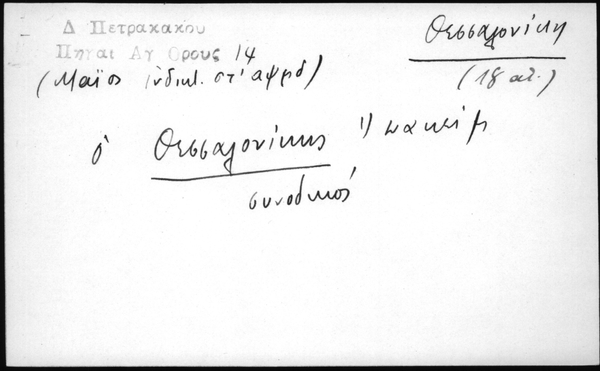 Δ Πετρακακου
Πηγαι Αγ Ορους 14
(Μαϊος ἰνδικτ. στ' αψμδ)
Θεσσαλονίκη
(18 αἰ.)
ὁ Θεσσαλονίκης Ἰωακείμ
συνοδικός